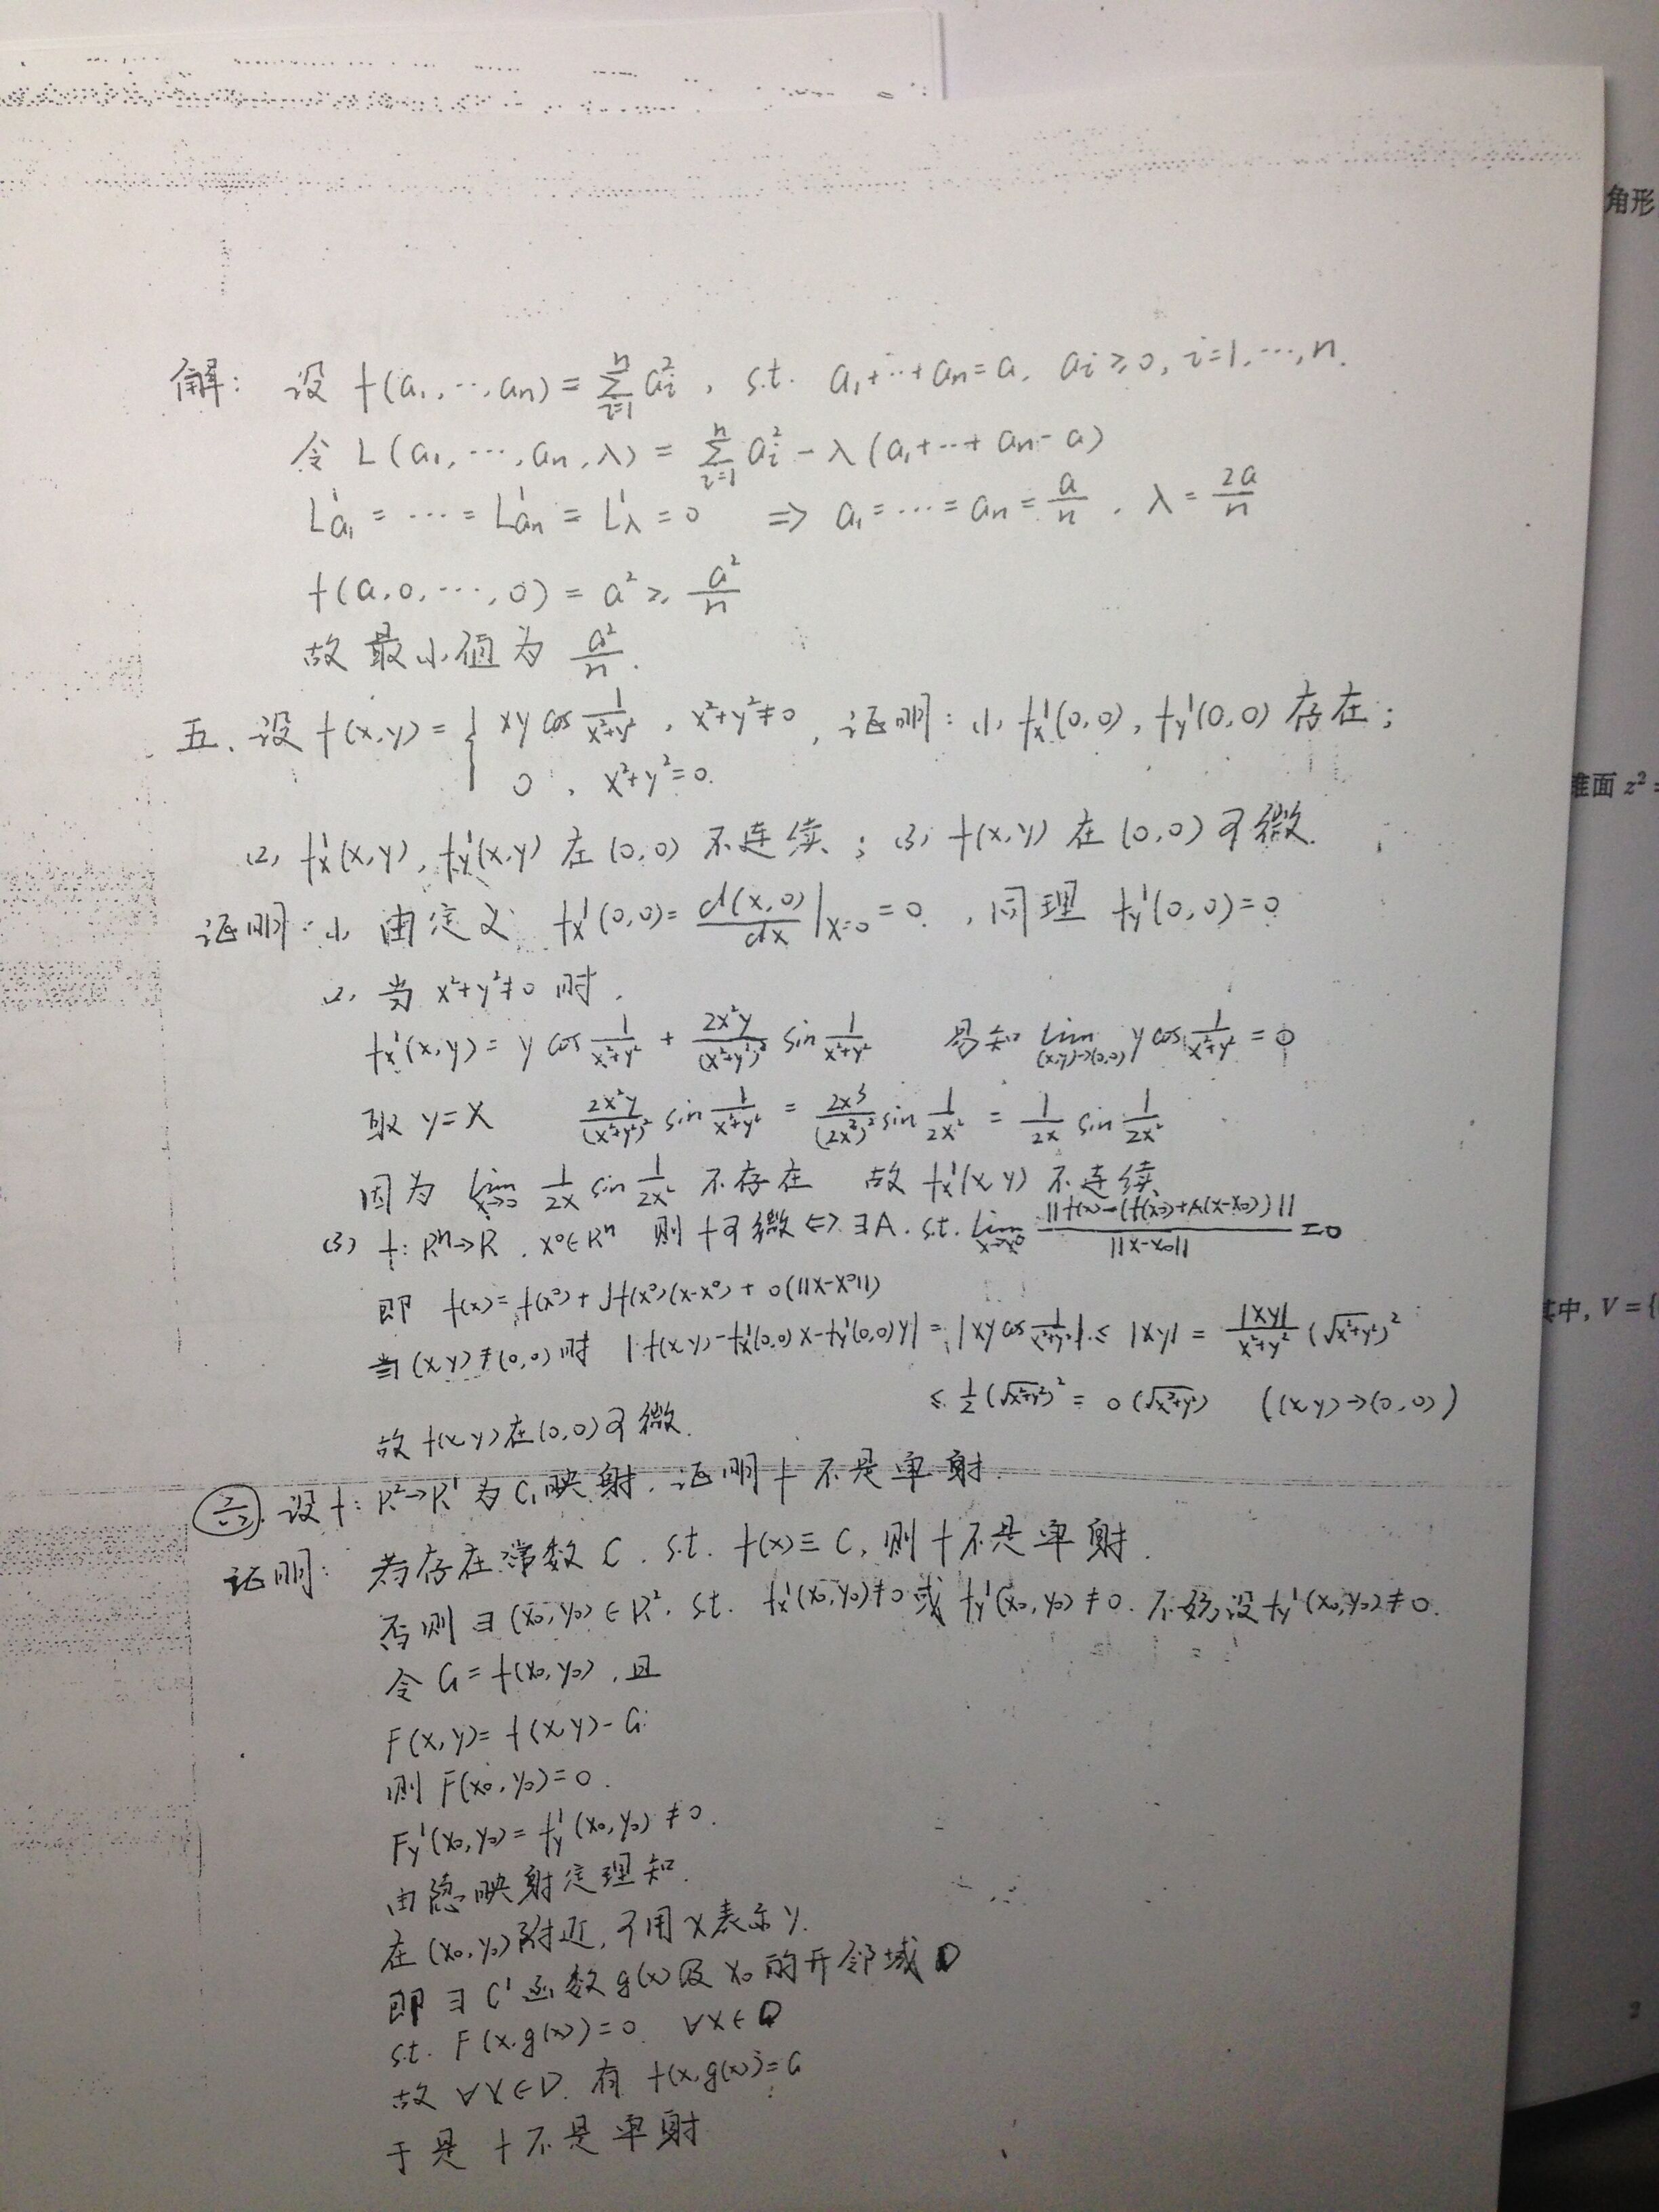 解: 设 f(a₁,…,aₙ) = ∑ᵢ₌₁ⁿ aᵢ², s.t. a₁+…+aₙ=a, aᵢ≥0, i=1,…,n.
令 L(a₁,…,aₙ,λ) = ∑ᵢ₌₁ⁿ aᵢ² - λ(a₁+…+aₙ-a)
L'a₁ = … = L'aₙ = L'λ = 0 ⇒ a₁=…=aₙ= a/n, λ = 2a/n
f(a,0,…,0) = a² ≥ a²/n
故最小值为 a²/n.
五、设 f(x,y) = { xy cos 1/(x²+y²), x²+y²≠0, 证明: (1) fx'(0,0), fy'(0,0) 存在;
0, x²+y²=0.
(2) fx'(x,y), fy'(x,y) 在 (0,0) 不连续; (3) f(x,y) 在 (0,0) 可微.
证明: (1) 由定义 fx'(0,0) = d(x,0)/dx |x=0 = 0, 同理 fy'(0,0)=0
(2) 当 x²+y²≠0 时,
fx'(x,y) = y cos 1/(x²+y²) + 2x²y/(x²+y²)² sin 1/(x²+y²) 易知 lim (x,y)→(0,0) y cos 1/(x²+y²) = 0
取 y=x 2x²y/(x²+y²)² sin 1/(x²+y²) = 2x³/(2x²)² sin 1/2x² = 1/2x sin 1/2x²
因为 lim x→0 1/2x sin 1/2x² 不存在 故 fx'(x,y) 不连续
(3) f: Rⁿ→R, x⁰∈Rⁿ 则 f 可微 ⇔ ∃A. s.t. lim x→x⁰ ||f(x)-(f(x₀)+A(x-x₀))|| / ||x-x₀|| = 0
即 f(x)=f(x⁰)+Jf(x⁰)(x-x⁰)+o(||x-x⁰||)
当 (x,y)≠(0,0) 时 |f(x,y)-fx'(0,0)x-fy'(0,0)y| = |xy cos 1/(x²+y²)| ≤ |xy| = |xy|/(x²+y²) (√(x²+y²))²
≤ 1/2 (√(x²+y²))² = o(√(x²+y²)) ((x,y)→(0,0))
故 f(x,y) 在 (0,0) 可微.
六. 设 f: R²→R¹ 为 C₁ 映射. 证明 f 不是单射.
证明: 若存在常数 C. s.t. f(x)≡C, 则 f 不是单射.
否则 ∃(x₀,y₀)∈R², s.t. fx'(x₀,y₀)≠0 或 fy'(x₀,y₀)≠0. 不妨设 fy'(x₀,y₀)≠0.
令 G=f(x₀,y₀), 且
F(x,y)=f(x,y)-G
则 F(x₀,y₀)=0.
Fy'(x₀,y₀)=fy'(x₀,y₀)≠0.
由隐映射定理知.
在 (x₀,y₀) 附近, 可用 x 表示 y.
即 ∃ C¹ 函数 g(x) 及 x₀ 的开邻域 D
s.t. F(x,g(x))=0 ∀x∈D
故 ∀x∈D. 有 f(x,g(x))=G
于是 f 不是单射
角形
锥面 z² =
其中, V = {(
2